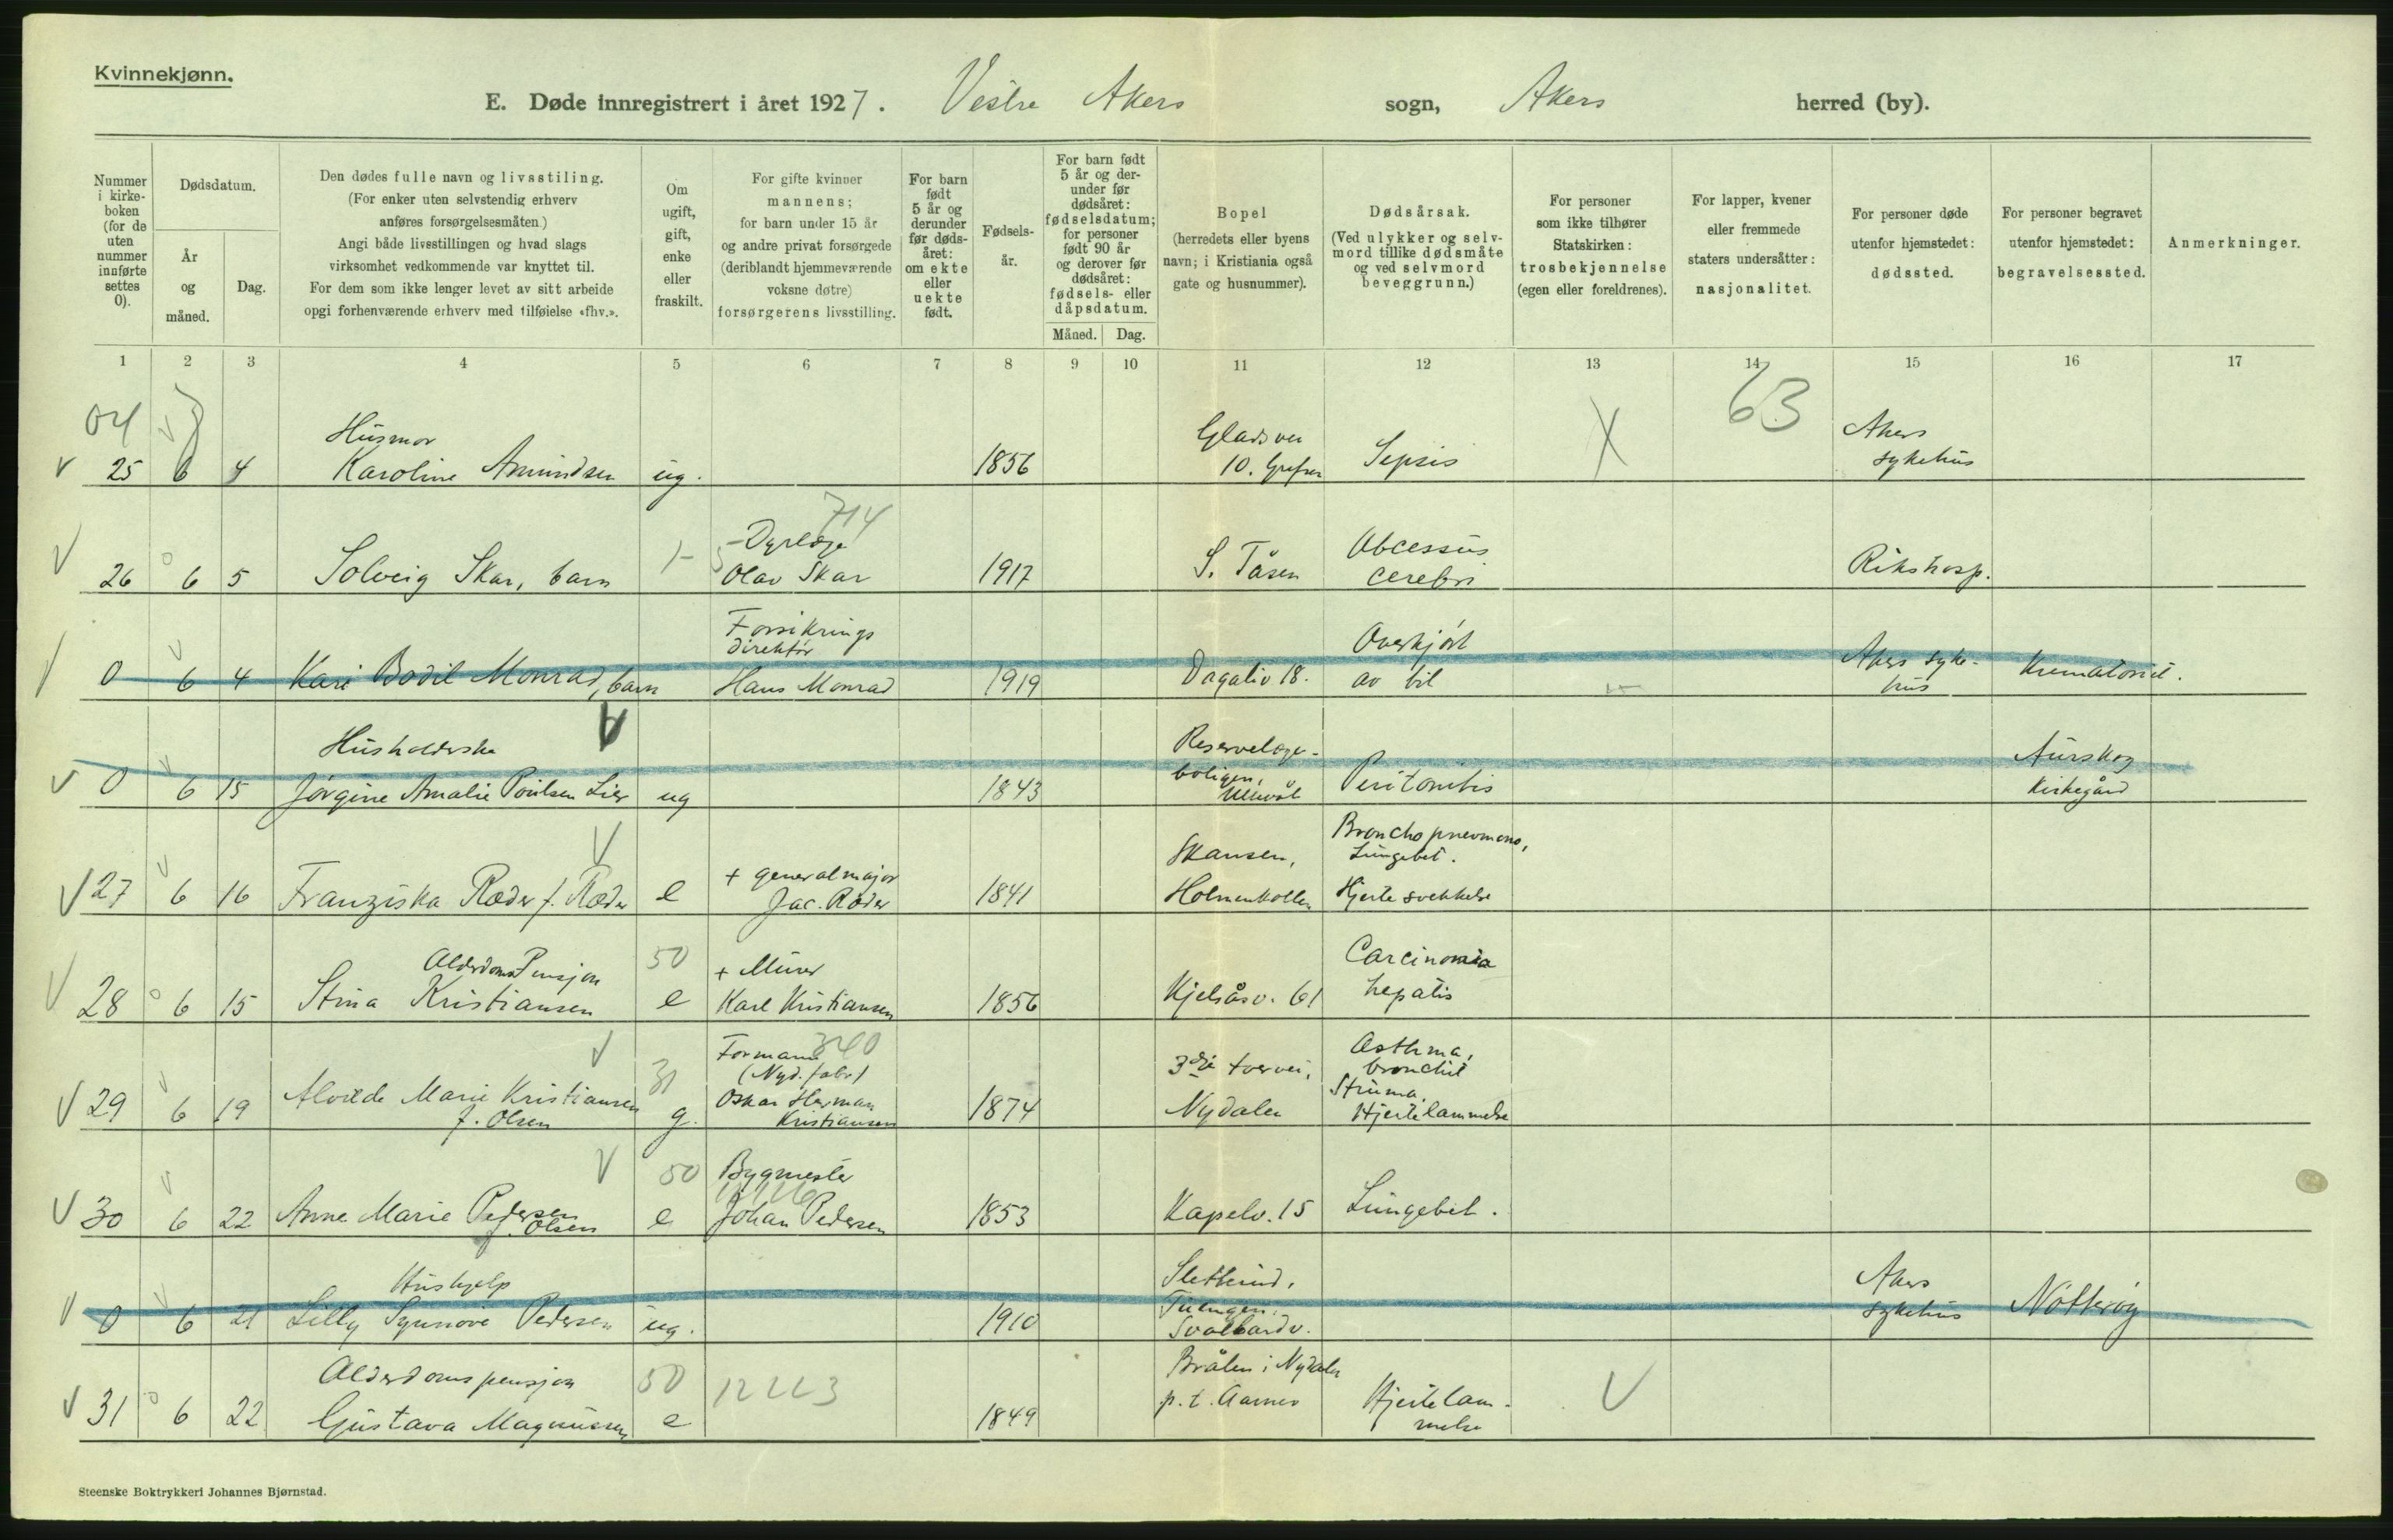 Kvinnekjønn.
E. Døde innregistrert i året 1927. Vestre Akers sogn, Akers herred (by).
Nummer i kirke- boken (for de uten nummer innførte settes 0).
Dødsdatum.
År og måned.
Dag.
Den dødes fulle navn og livsstilling.
(For enker uten selvstendig erhverv
anføres forsørgelsesmåten.)
Angi både livsstillingen og hvad slags
virksomhet vedkommende var knyttet til.
For dem som ikke lenger levet av sitt arbeide
opgi forhenværende erhverv med tilføielse «fhv.».
Om ugift, gift, enke eller fraskilt.
For gifte kvinner
mannens;
for barn under 15 år
og andre privat forsørgede
(deriblandt hjemmeværende
voksne døtre)
forsørgerens livsstilling.
For barn født 5 år og derunder før døds- året: om ekte eller uekte født.
Fødsels- år.
For barn født 5 år og der- under før dødsåret: fødselsdatum; for personer født 90 år og derover før dødsåret: fødsels- eller dåpsdatum.
Måned.
Dag.
Bopel
(herredets eller byens
navn; i Kristiania også
gate og husnummer).
Dødsårsak.
(Ved ulykker og selv-
mord tillike dødsmåte
og ved selvmord
beveggrunn.)
For personer
som ikke tilhører
Statskirken:
trosbekjennelse
(egen eller foreldrenes).
For lapper, kvener
eller fremmede
staters undersåtter:
nasjonalitet.
For personer døde
utenfor hjemstedet:
dødssted.
For personer begravet
utenfor hjemstedet:
begravelsessted.
Anmerkninger.
1 2 3 4 5 6 7 8 9 10 11 12 13 14 15 16 17
04 63
Husmor Akers
25 6 4 Karoline Amundsen ug. 1856 10. Grefsen Sepsis sykehus
714
Dyrlæge Abcessus
26 6 5 Solveig Skar, barn Olav Skar 1917 S. Tåsen cerebri Rikshosp.
Forsikrings
direktør Overkjørt Akers syke-
0 6 4 Kari Bodil Monrad, barn Hans Monrad 1919 Dagaliv 18. av bil hus Krematoriet.
Husholderske Reservelæge- Aurskog
boligen,
0 6 15 Jørgine Amalie Poulsen Lier ug 1843 Ullevål Peritonitis Kirkegård
Skansen, Broncho pneumoni,
Lungebet.
+ generalmajor
27 6 16 Franziska Ræder f. Ræder e Jac. Ræder 1841 Holmenkollen Hjerte svekkelse
Alderdoms Pensjon 50 + Murer Carcinomia
28 6 15 Stina Kristiansen e Karl Kristiansen 1856 Kjelsåsv. 61 hepatis
Formann 340 Asthma,
(Nyd. fabr) 3die tverrvei, bronchit
31 Struma,
29 6 19 Alvilde Marie Kristiansen f. Olsen g. Oskar Herman Kristiansen 1874 Nydalen Hjertelammelse
50 Bygmester
30 6 22 Anne Marie Pedersen f. Olsen e Johan Pedersen 1853 Kapelv. 15 Lungebet.
Hushjelp Akers
0 6 21 Lilly Synnøve Pedersen ug. 1910 Svalbardv. sykehus Nøtterøy
Alderdomspensjon 50 12223 Bråten i Nydalen
31 6 22 Gustava Magnussen e 1849 p.t. Aarnes Hjertelam-
melse
Steenske Boktrykkeri Johannes Bjørnstad.